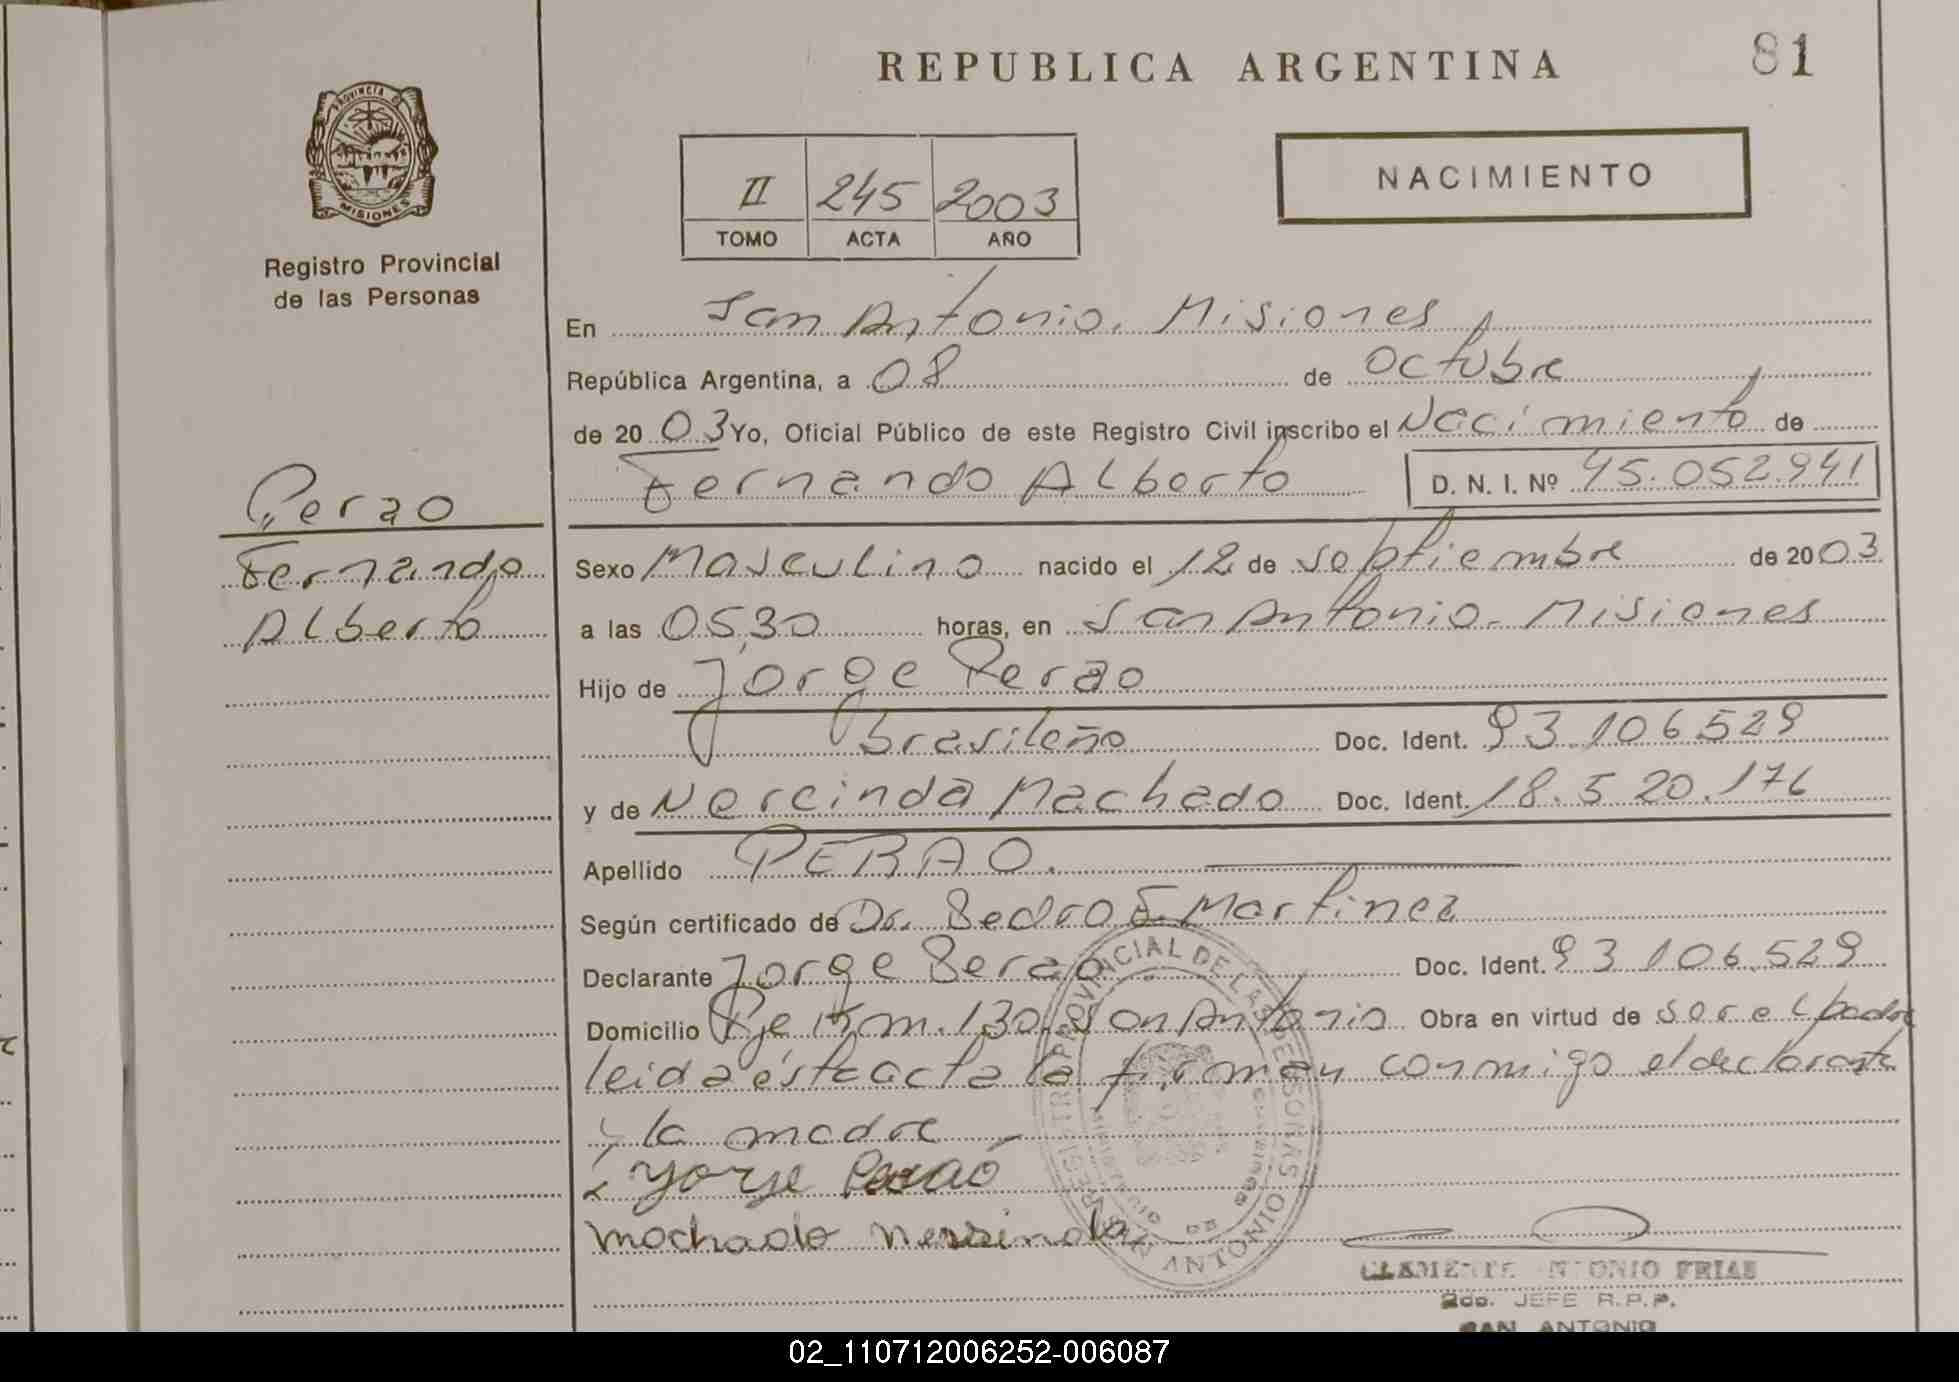 REPUBLICA ARGENTINA
81
PROVINCIA DE
MISIONES
Registro Provincial
de las Personas
II 245 2003
TOMO ACTA AÑO
NACIMIENTO
En San Antonio. Misiones
República Argentina, a 08 de Octubre
de 2003 Yo, Oficial Público de este Registro Civil inscribo el Nacimiento de
Fernando Alberto D. N. I. Nº 45.052.941
Perao
Fernando
Alberto
Sexo Masculino nacido el 12 de Septiembre de 2003
a las 05,30 horas, en San Antonio. Misiones
Hijo de Jorge Perao
brasileño Doc. Ident. 93.106.529
y de Nercinda Machado Doc. Ident. 18.520.176
Apellido PERAO.
Según certificado de Dr. Pedro E. Martinez
Declarante Jorge Perao Doc. Ident. 93.106.529
Domicilio Pje Km. 130. San Antonio Obra en virtud de ser el padre
leida ésta acta la firman conmigo el declarante
y la madre
Jorge Perao
Machado Nersinda
REGISTRO PROVINCIAL DE LAS PERSONAS
MINISTERIO DE
SAN ANTONIO
CLEMENTE ANTONIO FRIAS
2do. JEFE R.P.P.
SAN ANTONIO
02_110712006252-006087